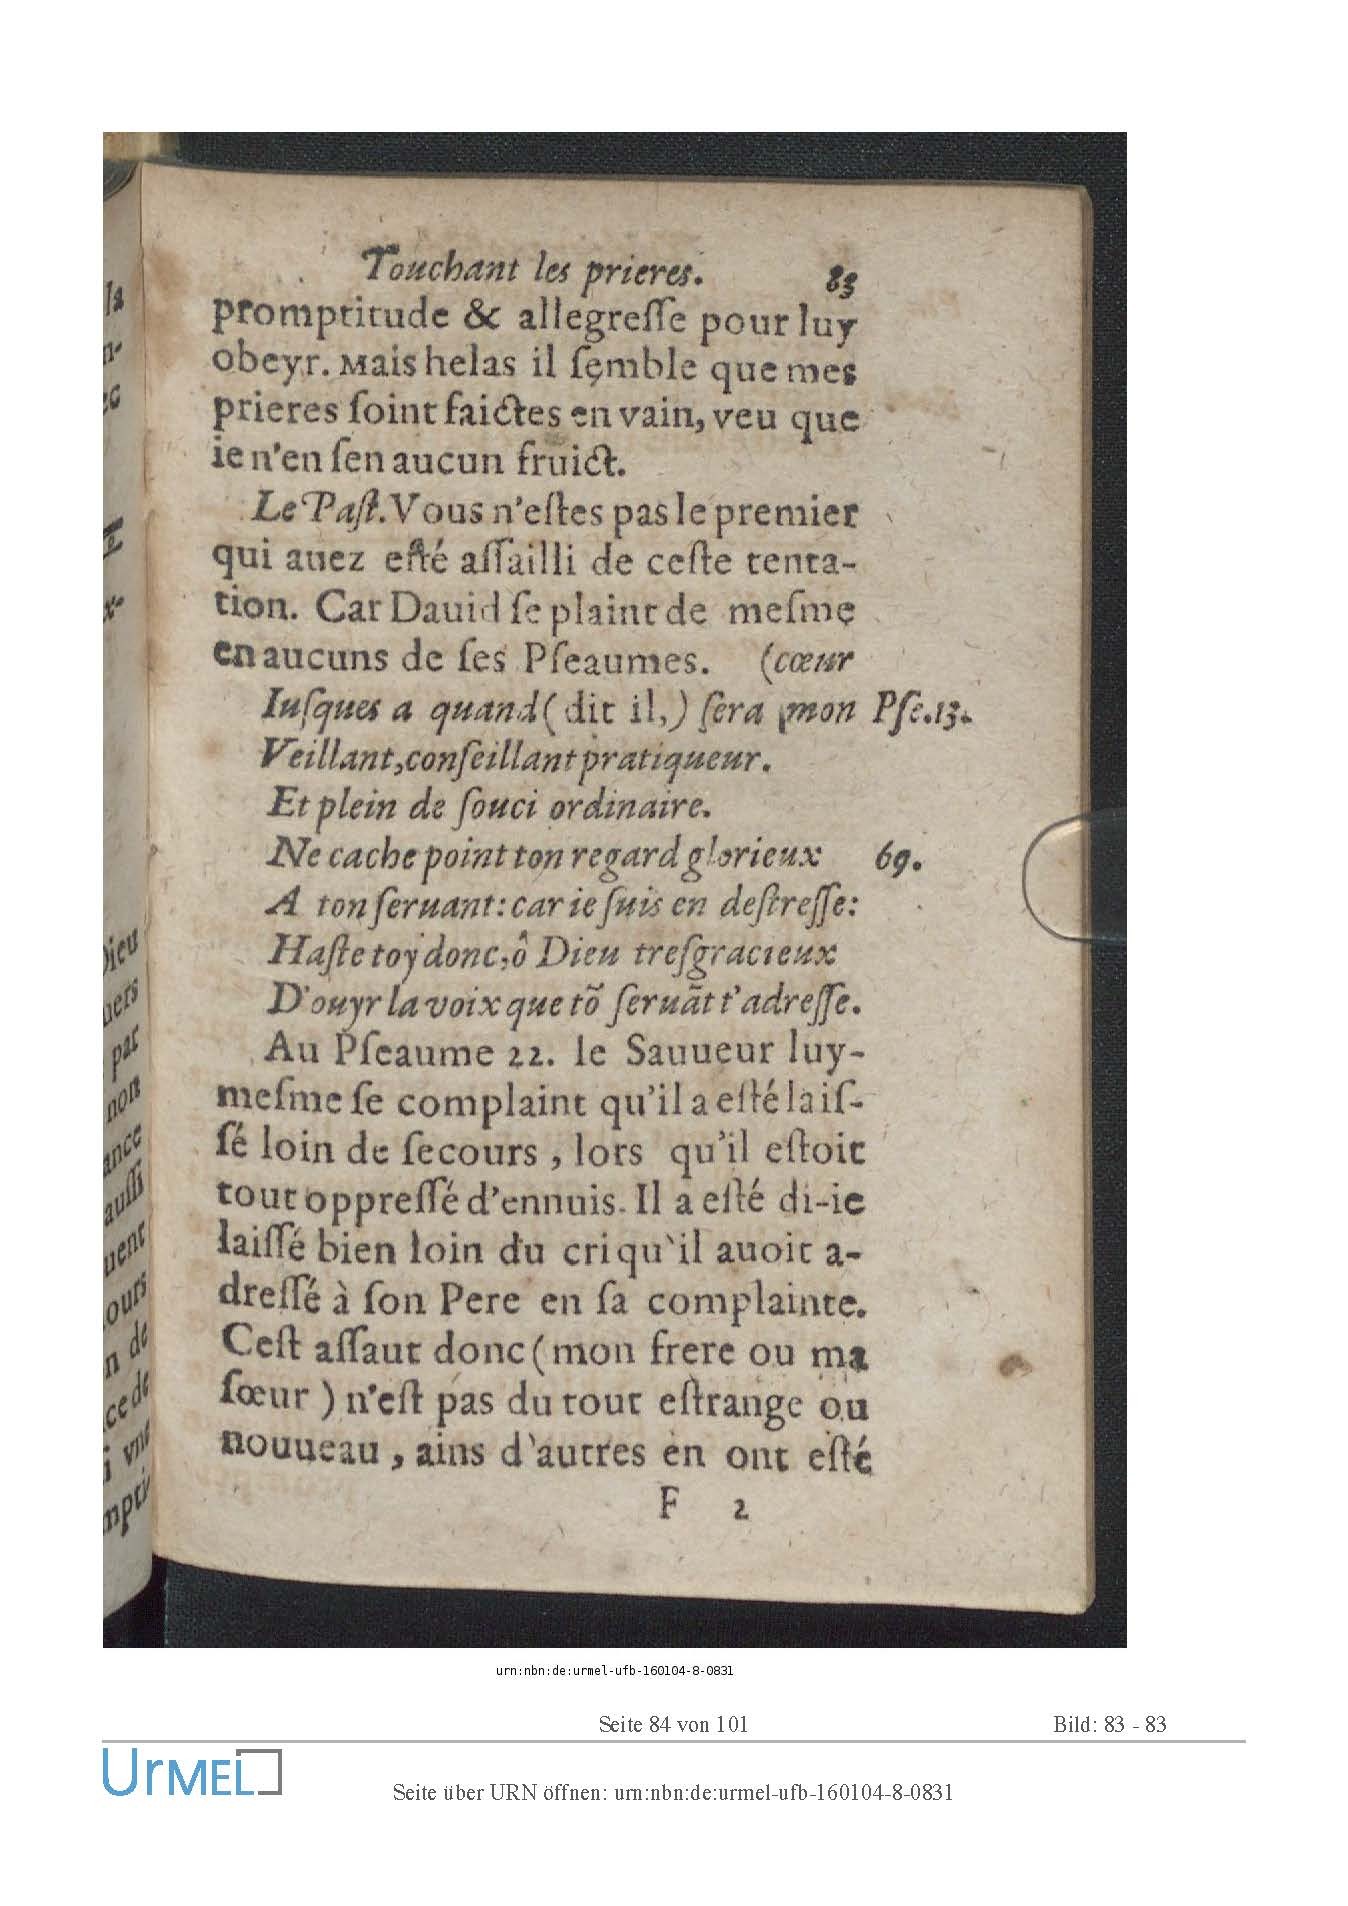 Touchant les prieres. 83
promptitude & allegreſſe pour luy
obeyr. Mais helas il ſemble que mes
prieres ſoint faictes en vain, veu que
ie n'en ſen aucun fruict.
Le Paſt. Vous n'eſtes pas le premier
qui auez eſté aſſailli de ceſte tenta-
tion. Car Dauid ſe plaint de meſme
en aucuns de ſes Pſeaumes. (cœur
Iuſques a quand ( dit il, ) ſera mon Pſe.13.
Veillant, conſeillant pratiqueur.
Et plein de ſouci ordinaire.
Ne cache point ton regard glorieux 69.
A ton ſeruant: car ie ſuis en deſtreſſe:
Haſte toy donc, ô Dieu treſgracieux
D'ouyr la voix que tõ ſeruãt t'adreſſe.
Au Pſeaume 22. le Sauueur luy-
meſme ſe complaint qu'il a eſté laiſ-
ſé loin de ſecours , lors qu'il eſtoit
tout oppreſſé d'ennuis. Il a eſté di-ie
laiſſé bien loin du cri qu'il auoit a-
dreſſé à ſon Pere en ſa complainte.
Ceſt aſſaut donc ( mon frere ou ma
ſœur ) n'eſt pas du tout eſtrange ou
nouueau , ains d'autres en ont eſté
F 2
la
n-
ec
x-
Dieu
uers
par
non
ance
auſſi
uent
ours
n de
ce de
i vne
mpti
urn:nbn:de:urmel-ufb-160104-8-0831
Seite 84 von 101 Bild: 83 - 83
UrMEL
Seite über URN öffnen: urn:nbn:de:urmel-ufb-160104-8-0831